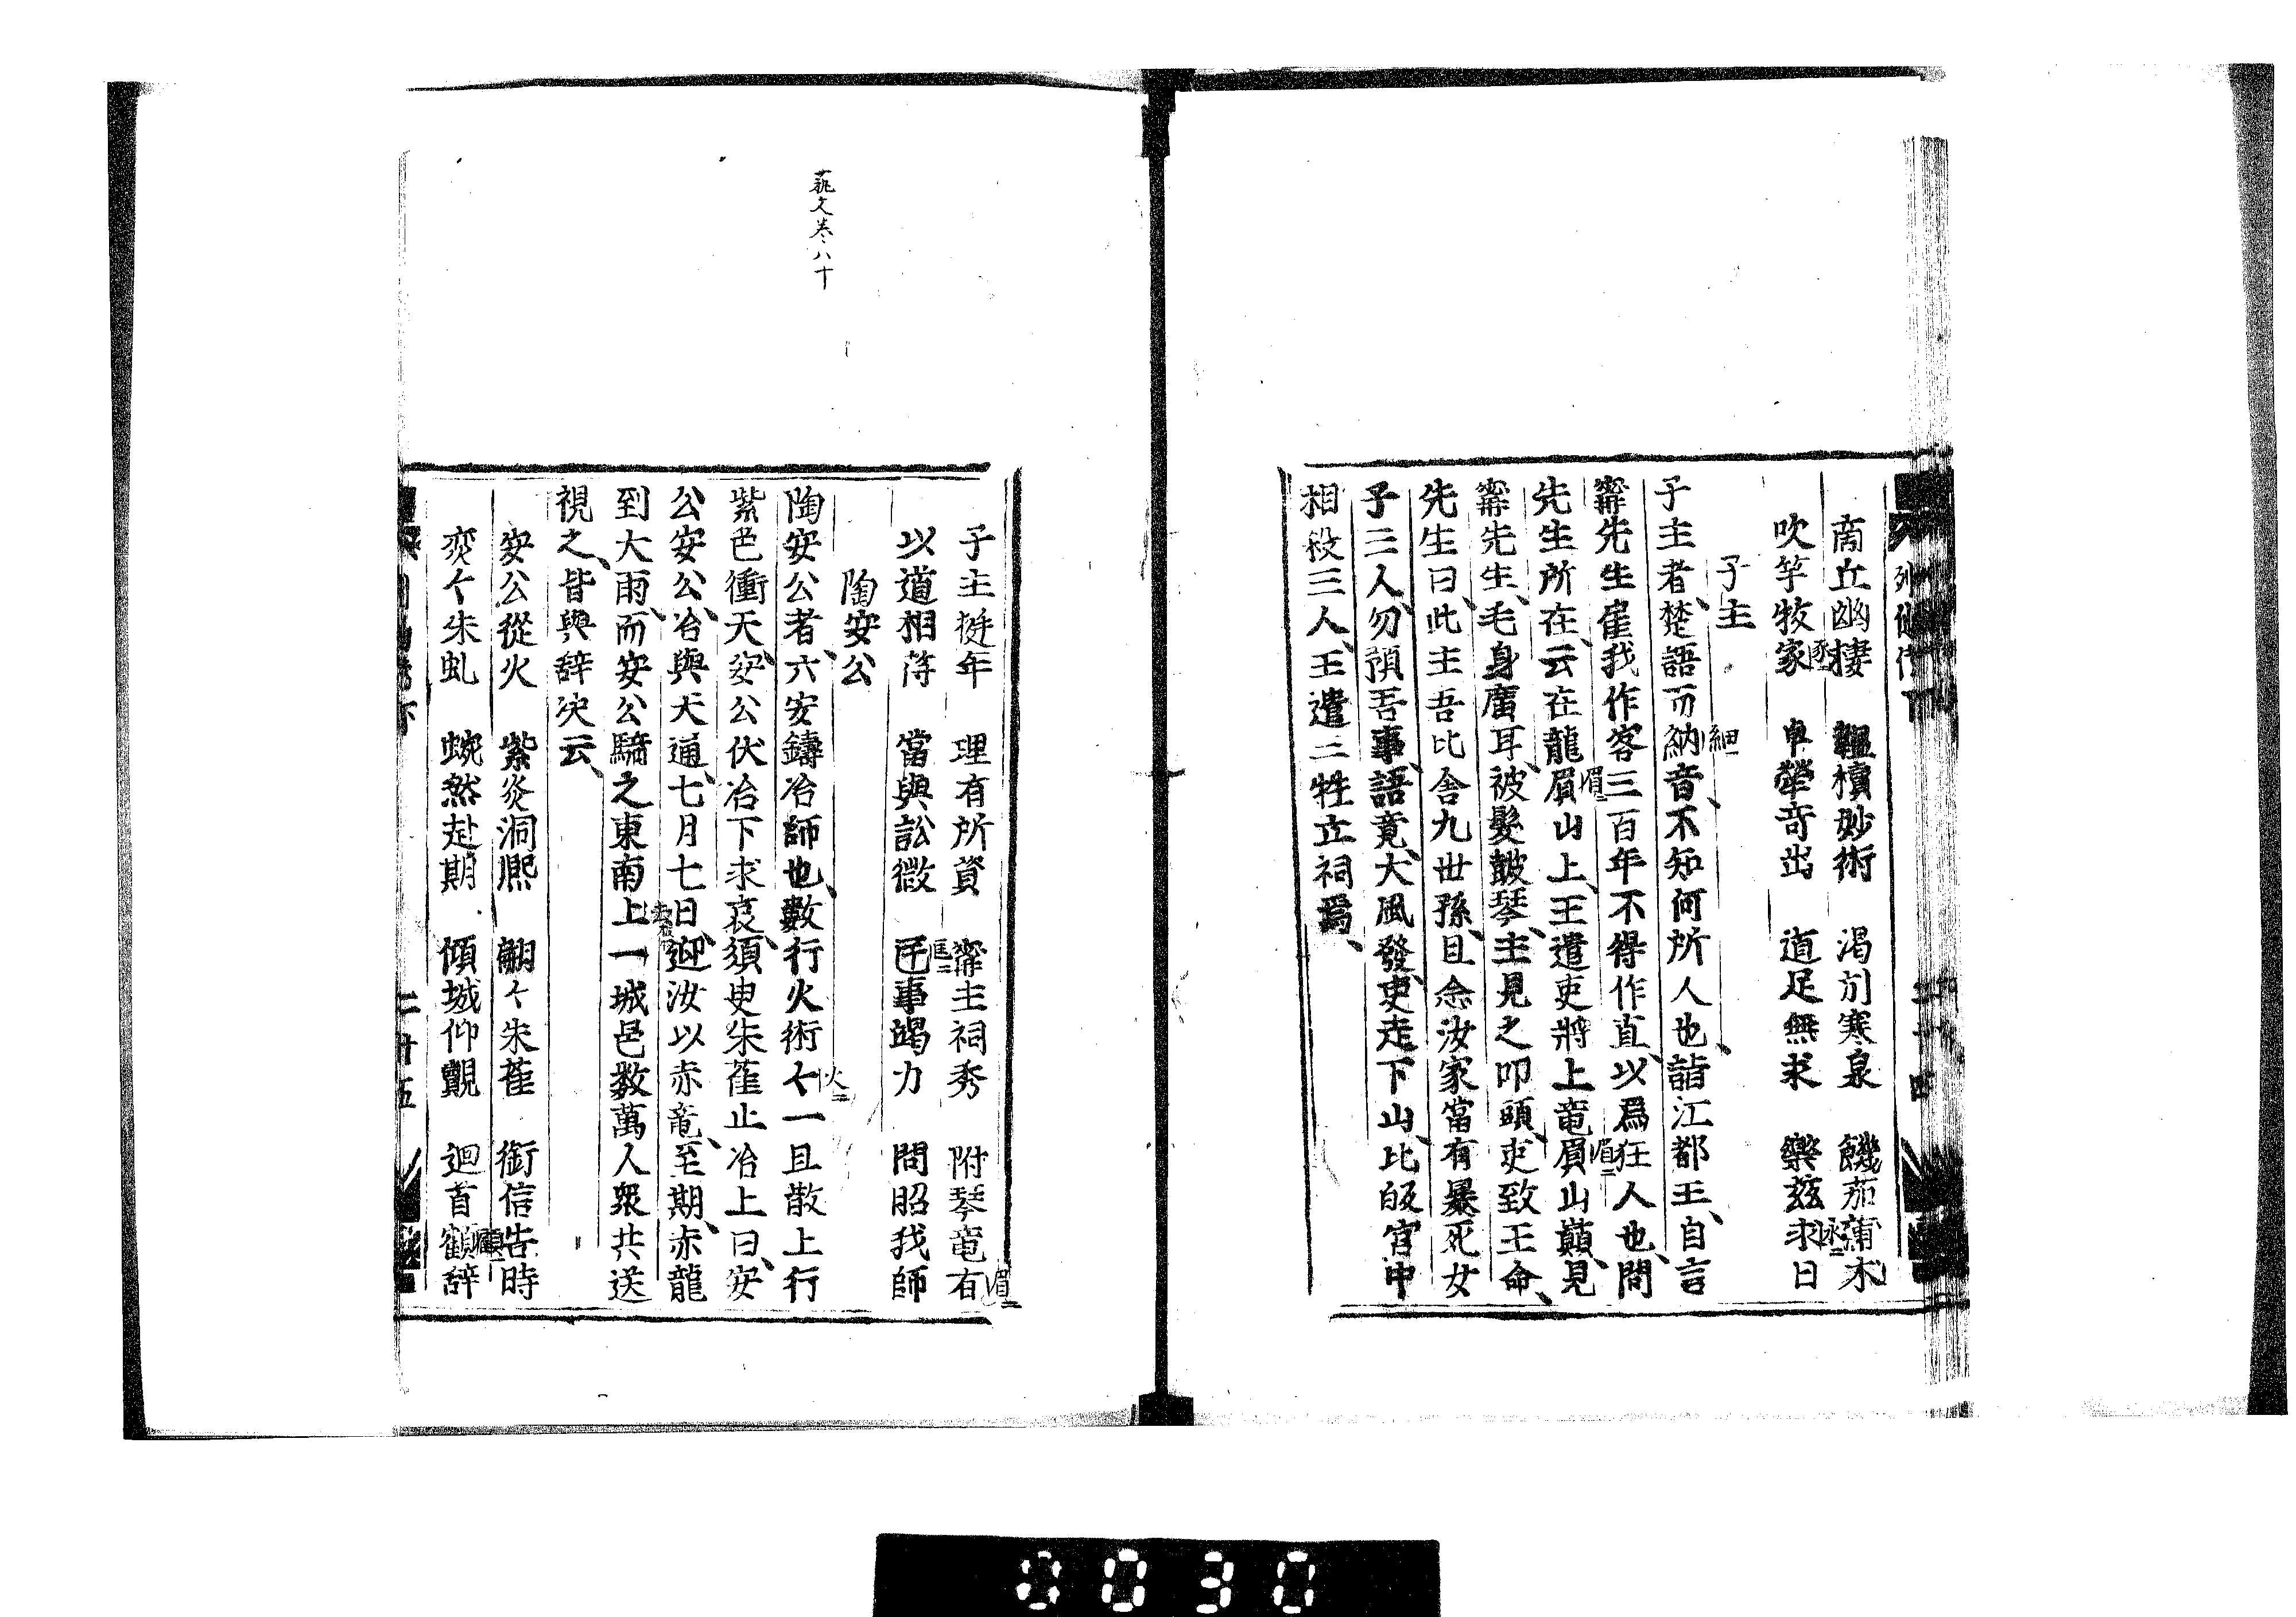 商丘幽棲　韞櫝妙術　渴飮寒泉　饑茹蒲朮
吹竽牧家　卓犖奇出　道足無求　樂兹求日
子主
子主者楚語而納音不知何所人也詣江都王自言
甯先生雇我作客三百年不得作直以爲狂人也問
先生所在云在龍眉山上王遣吏將上竜眉山巔見
甯先生毛身廣耳被髮皷琴主見之叩頭吏致王命
先生曰此主吾比舍九世孫且念汝家當有暴死女
子三人勿預吾事語竟大風發吏走下山比皈宮中
相殺三人王遣三牲立祠焉
子主挻年　理有所資　甯主祠秀　附琴竜有
以道相符　當與訟微　匡事竭力　問昭我師
陶安公
陶安公者六安鑄冶師也數行火術〻一旦散上行
紫色衝天安公伏冶下求哀須臾朱雀止冶上曰安
公安公冶與天通七月七日迎汝以赤竜至期赤龍
到大雨而安公騎之東南上一城邑數萬人衆共送
視之皆與辞决云
安公從火　紫炎洞熈　翩〻朱雀　銜信告時
奕〻朱虬　蜿然赴期　傾城仰覿　迴首顧辞
二十五
藝文巻八十
0030